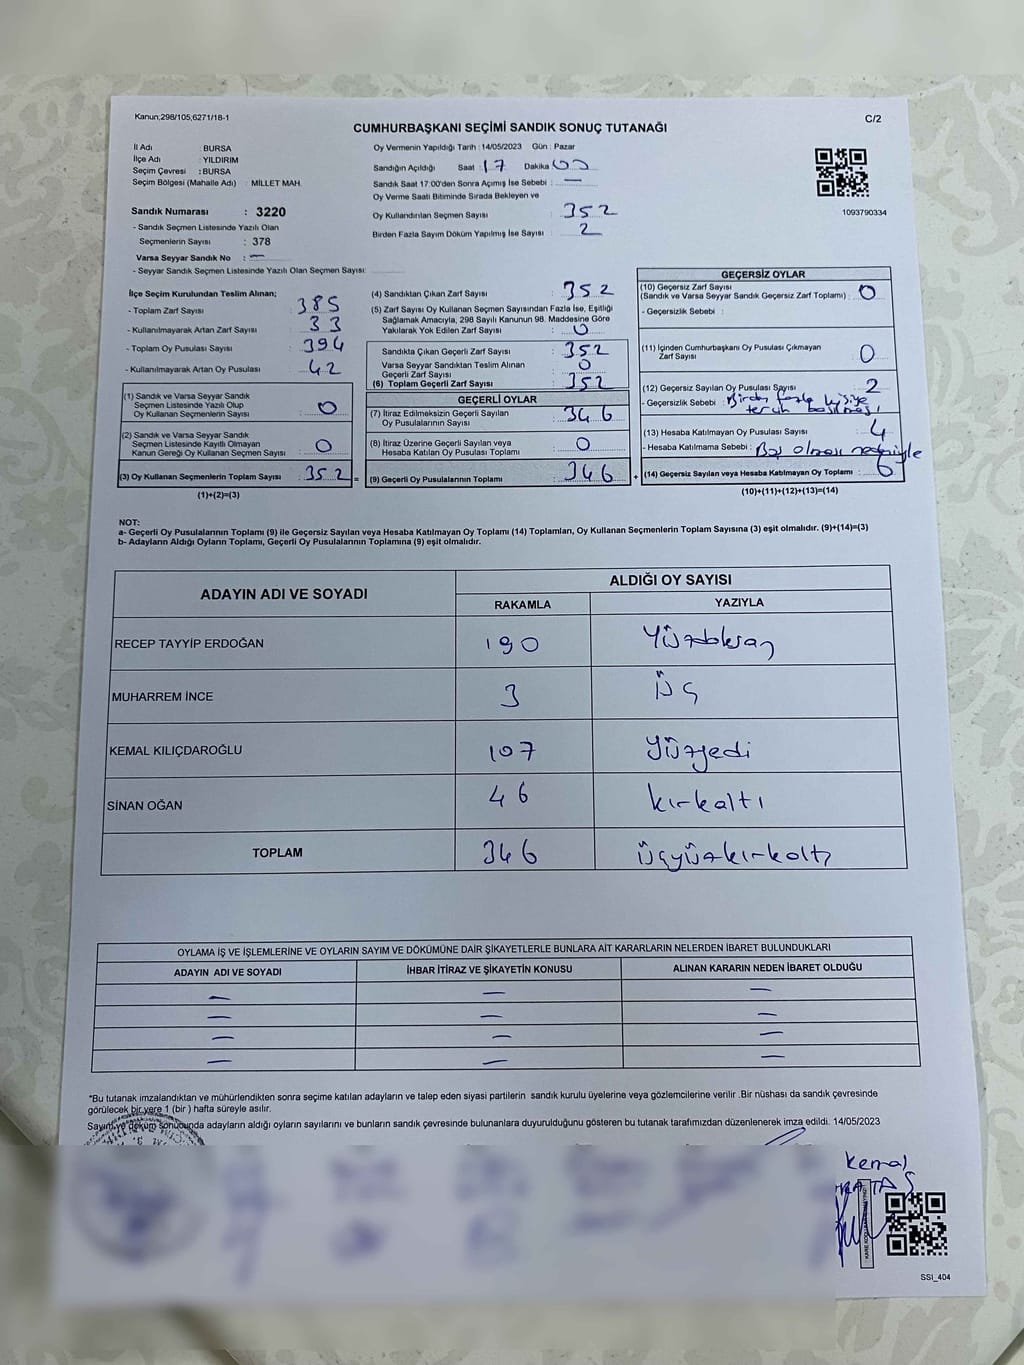 Kanun,298/105,6271/18-1
C/2
CUMHURBAŞKANI SEÇİMİ SANDIK SONUÇ TUTANAĞI
İl Adı : BURSA
İlçe Adı : YILDIRIM
Seçim Çevresi : BURSA
Seçim Bölgesi (Mahalle Adı) : MİLLET MAH.
Sandık Numarası : 3220
- Sandık Seçmen Listesinde Yazılı Olan
Seçmenlerin Sayısı : 378
Varsa Seyyar Sandık No : —
- Seyyar Sandık Seçmen Listesinde Yazılı Olan Seçmen Sayısı:
Oy Vermenin Yapıldığı Tarih : 14/05/2023 Gün : Pazar
Sandığın Açıldığı Saat : 17 Dakika : 00
Sandık Saat 17:00'den Sonra Açımış İse Sebebi : —
Oy Verme Saati Bitiminde Sırada Bekleyen ve
Oy Kullandırılan Seçmen Sayısı : 352
Birden Fazla Sayım Döküm Yapılmış İse Sayısı : 2
1093790334
İlçe Seçim Kurulundan Teslim Alınan;
- Toplam Zarf Sayısı : 385
- Kullanılmayarak Artan Zarf Sayısı : 33
- Toplam Oy Pusulası Sayısı : 394
- Kullanılmayarak Artan Oy Pusulası : 42
(1) Sandık ve Varsa Seyyar Sandık
Seçmen Listesinde Yazılı Olup
Oy Kullanan Seçmenlerin Sayısı : 0
(2) Sandık ve Varsa Seyyar Sandık
Seçmen Listesinde Kayıtlı Olmayan
Kanun Gereği Oy Kullanan Seçmen Sayısı : 0
(3) Oy Kullanan Seçmenlerin Toplam Sayısı : 352 =
(1)+(2)=(3)
(4) Sandıktan Çıkan Zarf Sayısı : 352
(5) Zarf Sayısı Oy Kullanan Seçmen Sayısından Fazla İse, Eşitliği
Sağlamak Amacıyla, 298 Sayılı Kanunun 98. Maddesine Göre
Yakılarak Yok Edilen Zarf Sayısı : 0
Sandıkta Çıkan Geçerli Zarf Sayısı : 352
Varsa Seyyar Sandıktan Teslim Alınan
Geçerli Zarf Sayısı : 0
(6) Toplam Geçerli Zarf Sayısı : 352
GEÇERLİ OYLAR
(7) İtiraz Edilmeksizin Geçerli Sayılan
Oy Pusulasının Sayısı : 346
(8) İtiraz Üzerine Geçerli Sayılan veya
Hesaba Katılan Oy Pusulası Toplamı : 0
(9) Geçerli Oy Pusulalarının Toplamı : 346 +
GEÇERSİZ OYLAR
(10) Geçersiz Zarf Sayısı
(Sandık ve Varsa Seyyar Sandık Geçersiz Zarf Toplamı) : 0
- Geçersizlik Sebebi :
(11) İçinden Cumhurbaşkanı Oy Pusulası Çıkmayan
Zarf Sayısı : 0
(12) Geçersiz Sayılan Oy Pusulası Sayısı : 2
- Geçersizlik Sebebi : Birden fazla kişiye
tercih basılması
(13) Hesaba Katılmayan Oy Pusulası Sayısı : 4
- Hesaba Katılmama Sebebi : Boş olması nedeniyle
(14) Geçersiz Sayılan veya Hesaba Katılmayan Oy Toplamı : 6
(10)+(11)+(12)+(13)=(14)
NOT:
a- Geçerli Oy Pusulalarının Toplamı (9) ile Geçersiz Sayılan veya Hesaba Katılmayan Oy Toplamı (14) Toplamları, Oy Kullanan Seçmenlerin Toplam Sayısına (3) eşit olmalıdır. (9)+(14)=(3)
b- Adayların Aldığı Oyların Toplamı, Geçerli Oy Pusulalarının Toplamına (9) eşit olmalıdır.
ADAYIN ADI VE SOYADI
ALDIĞI OY SAYISI
RAKAMLA YAZIYLA
RECEP TAYYİP ERDOĞAN 190 Yüzdoksan
MUHARREM İNCE 3 Üç
KEMAL KILIÇDAROĞLU 107 Yüzyedi
SİNAN OĞAN 46 kırkaltı
TOPLAM 346 üçyüzkırkaltı
OYLAMA İŞ VE İŞLEMLERİNE VE OYLARIN SAYIM VE DÖKÜMÜNE DAİR ŞİKAYETLERLE BUNLARA AİT KARARLARIN NELERDEN İBARET BULUNDUKLARI
ADAYIN ADI VE SOYADI İHBAR İTİRAZ VE ŞİKAYETİN KONUSU ALINAN KARARIN NEDEN İBARET OLDUĞU
— — —
— — —
— — —
— — —
*Bu tutanak imzalandıktan ve mühürlendikten sonra seçime katılan adayların ve talep eden siyasi partilerin sandık kurulu üyelerine veya gözlemcilerine verilir .Bir nüshası da sandık çevresinde
görülecek bir yere 1 (bir ) hafta süreyle asılır.
Sayım ve döküm sonucunda adayların aldığı oyların sayılarını ve bunların sandık çevresinde bulunanlara duyurulduğunu gösteren bu tutanak tarafımızdan düzenlenerek imza edildi. 14/05/2023
Kemal
SSI_404